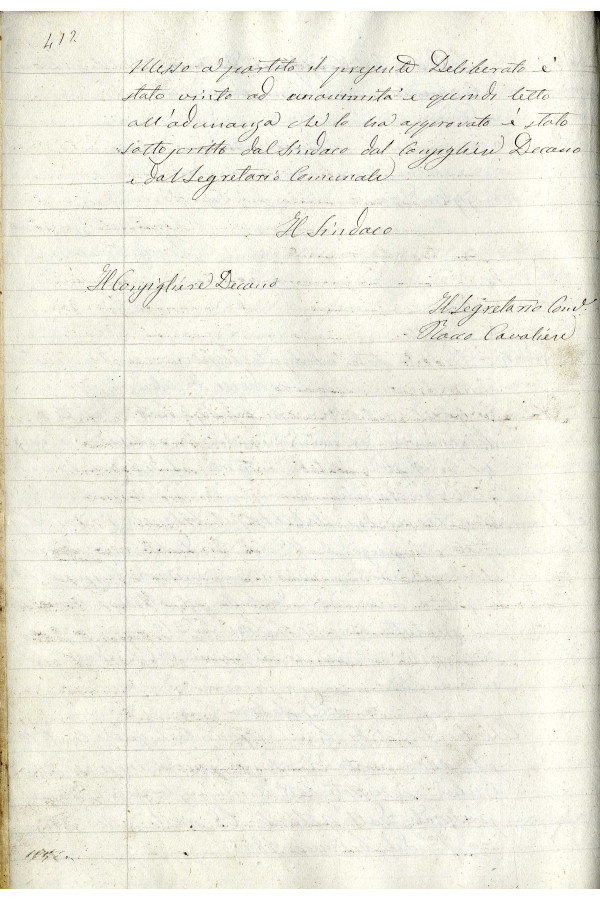 412
Messo a' partito il presente Deliberato è
stato vinto ad unanimità e quindi letto
all'adunanza che lo ha approvato è stato
sottoscritto dal Sindaco dal Consigliere Decano
e dal Segretario Comunale
Il Sindaco
Il Consigliere Decano
Il Segretario Com.le
Rocco Cavaliere